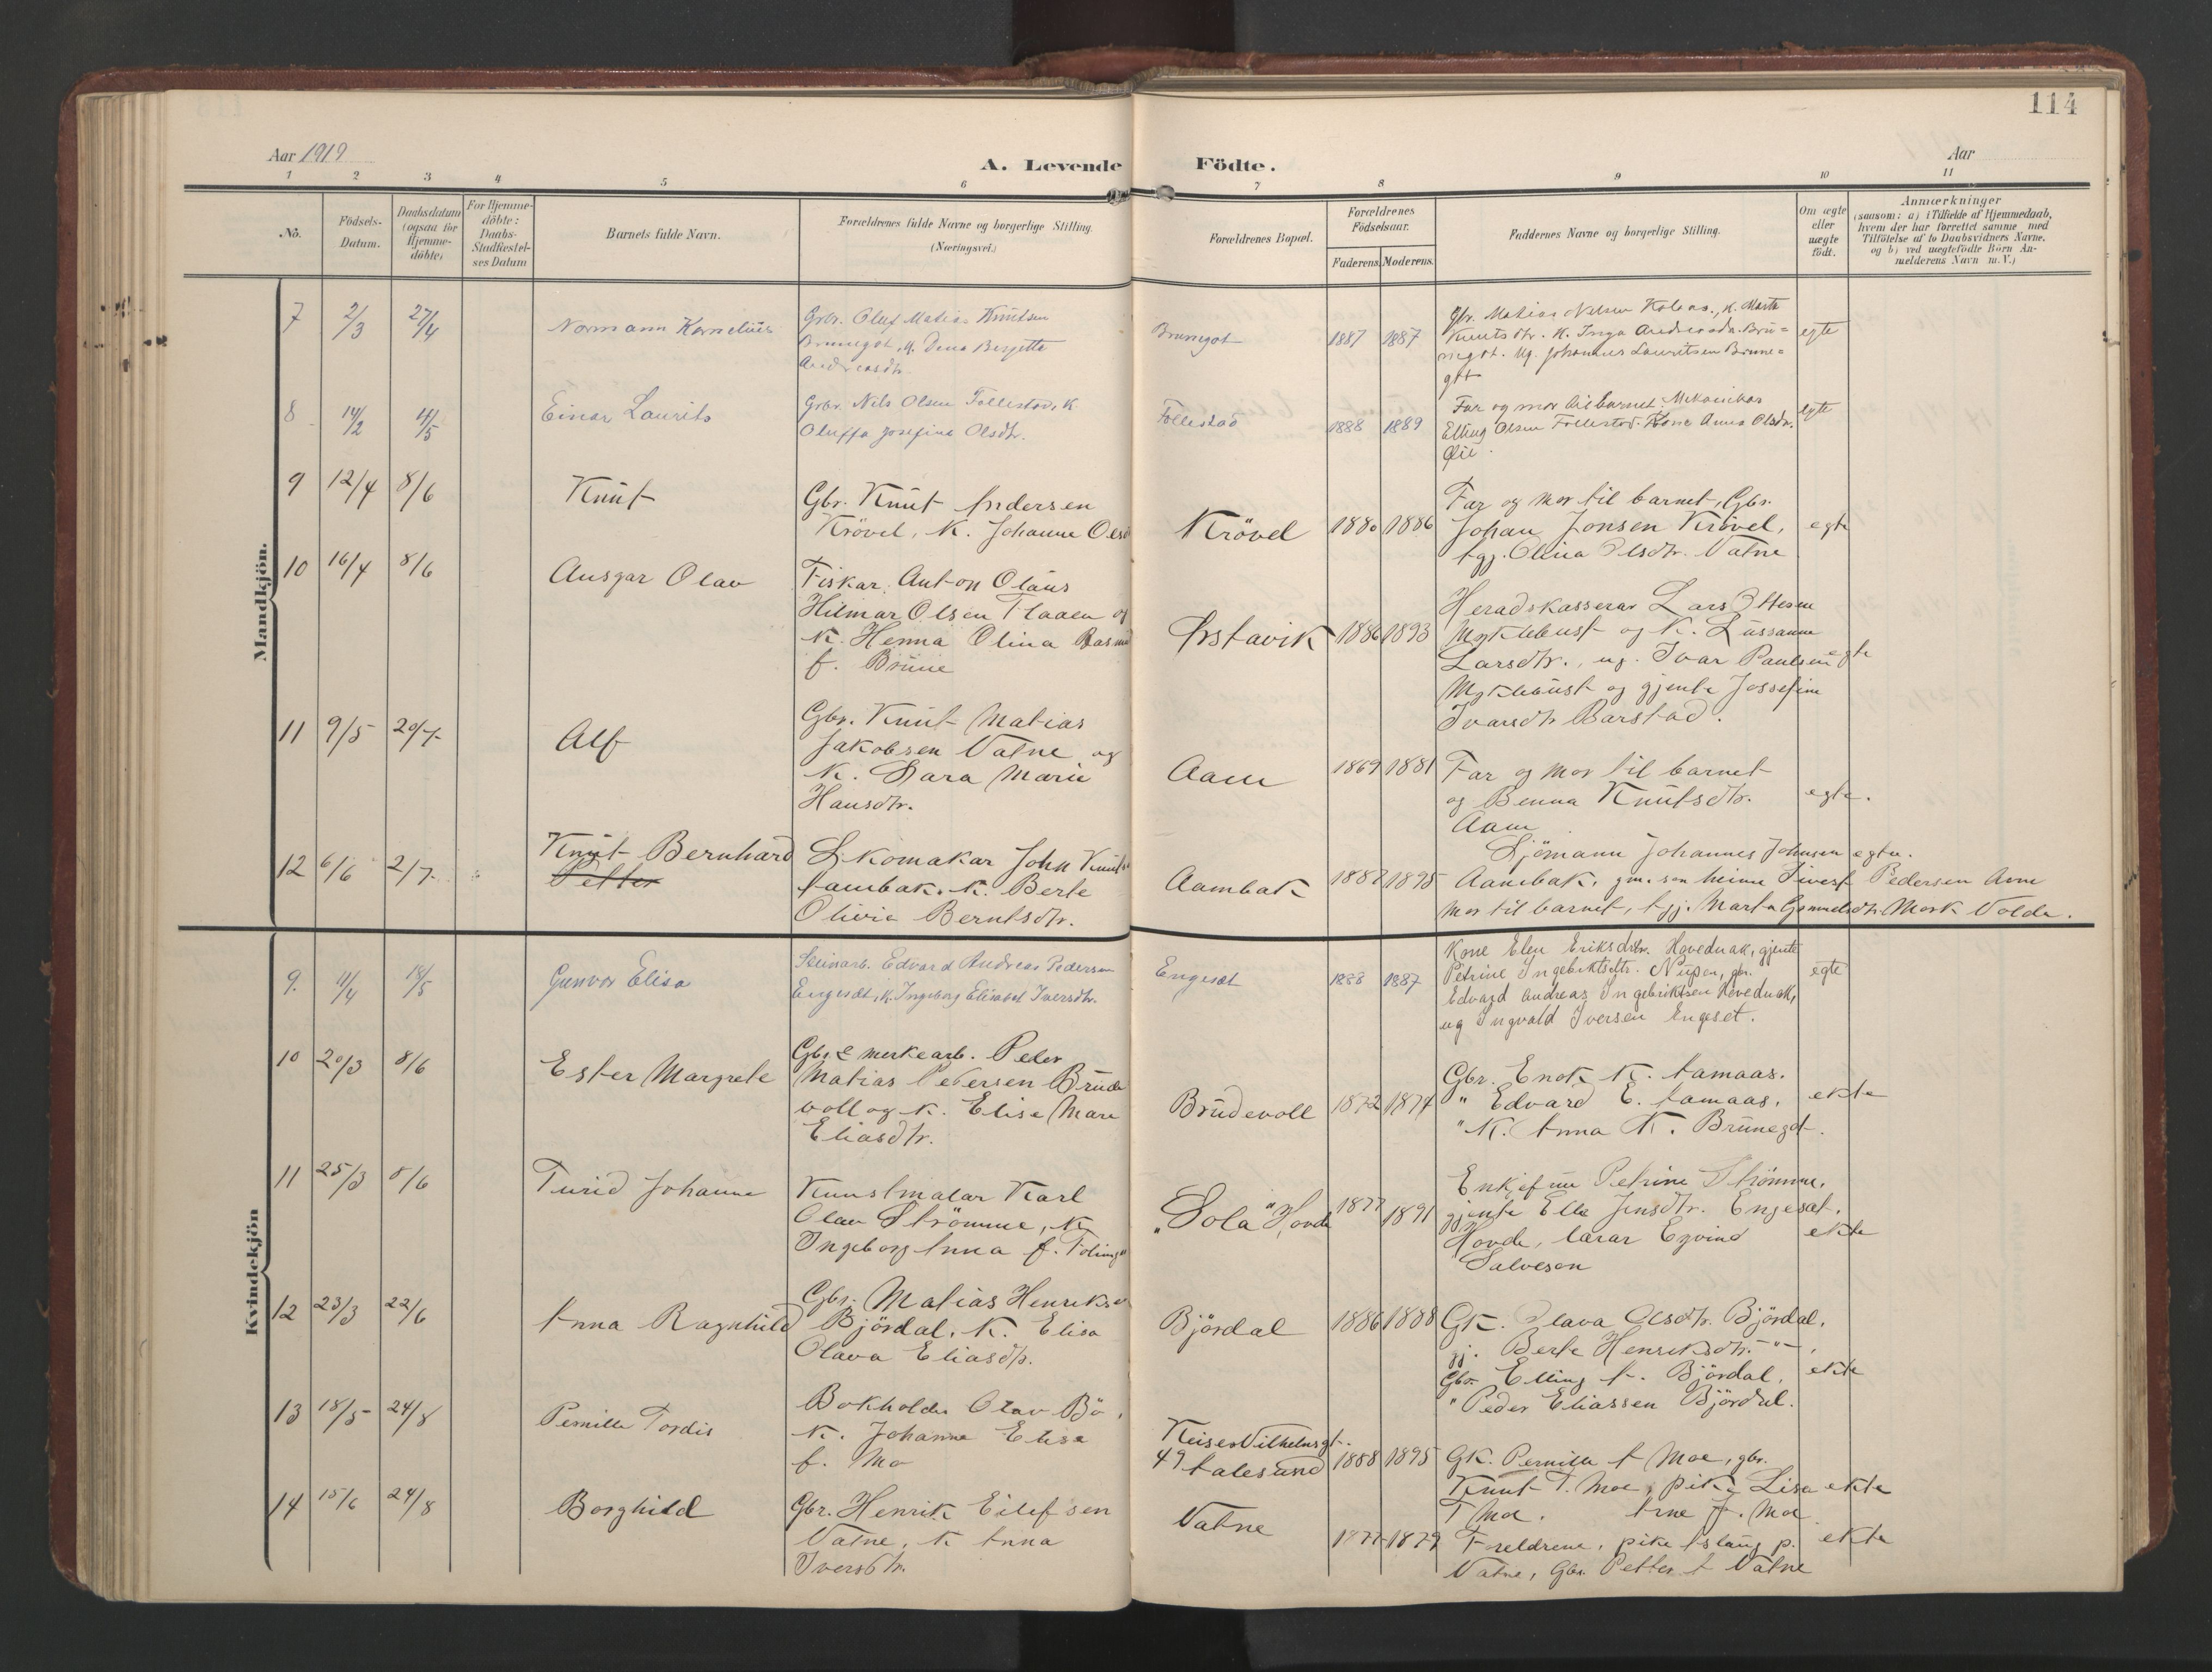 114
Aar 1919
A. Levende Födte.
Aar
1 2 3 4 5 6 7 8 9 10 11
No.
Födsels-
Datum.
Daabsdatum
(ogsaa for
Hjemme-
döbte)
For Hjemme-
döbte:
Daabs-
Stadfæstel-
ses Datum
Barnets fulde Navn.
Forældrenes fulde Navne og borgerlige Stilling.
(Næringsvei.)
Forældrenes Bopæl.
Forældrenes
Födselsaar.
Faderens. Moderens.
Faddernes Navne og borgerlige Stilling.
Om ægte
eller
uægte
födt.
Anmærkninger
(saasom: a) i Tilfælde af Hjemmedaab,
hvem der har forrettet samme med
Tilföielse af to Daabsvidners Navne,
og b) ved uægtefödte Börn An-
melderens Navn m. V.)
Mandkjön.
7 2/3 27/4 Normann Kornelius
Gbr. Oluf Matias Knutsen
Brunegot, K. Dena Bergitte
Andreasdtr.
Brunegot 1887 1887
Gbr. Matias Nilsen Kolaas, K. Marte
Knutsdtr. K. Inga Andreasdtr. Bru=
negot. Ug. Johannes Lauritsen Brune=
got
egte
8 14/2 4/5 Einar Laurits
Grbr. Nils Olsen Follestad, K
Oluffa Josefine Olsdtr.
Follestad 1888 1889
Far og mor til barnet. Mekanikar
Elling Olsen Follestad. Kone Anna Olsdtr.
Øie.
egte
9 12/4 8/6 Knut
Gbr. Knut Andersen
Krövel, K. Johanne Olsd
Krövel 1880 1886
Far og mor til barnet, Gbr.
Johan Jonsen Krövel,
tgj. Olina Olsdtr. Vatne
egte
10 16/4 8/6 Ansgar Olav
Fiskar Anton Olaus
Hilmar Olsen Flaaen og
K. Henna Olina Rasm
f. Brune
Ørstavik 1886 1893
Heradskasserar Lars Ottesen
Myklebust og K. Sussanne
Larsdtr., ug. Ivar Paulsen
Myklebust og gjente Jossefine
Ivarsdtr Barstad.
egte
11 9/5 20/7 Alf
Gbr. Knut Matias
Jakobsen Vatne og
K. Sara Marie
Hansdtr.
Aam 1869 1881
Far og mor til barnet
og Benna Knutsdtr.
Aam
egte.
12 6/6 2/7 Knut Bernhard
Petter
Skomakar John Knuts
Aambak. K. Berte
Olivia Berntsdtr.
Aambak 1887 1895
Sjömann Johannes Johnsen egte.
Aambak, gm. son heime Sivert Pedersen Aam
Mor til barnet, tgj. Marta Gammelsdtr. Mork Volda.
Kvindekjön
9. 11/4 18/5 Gunvor Elisa
Steinarb. Edvard Andreas Pedersen
Engeset, K. Ingeborg Elisabet Iversdtr.
Engeset 1888 1887
Kone Elen Eriksdtr. Hovednak, gjente
Petrine Ingebriktsdtr. Nupen, gbr.
Edvard Andreas Ingebriktsen Hovednak,
ug Ingvald Iversen Engeset.
egte
10 20/3 8/6 Ester Margrete
Gbr. & merkearb. Peder
Matias Petersen Brude
voll og K. Elise Mare
Eliasdtr.
Brudevoll 1872 1874
Gbr. Enok K. Aamaas.
" Edvard E. Aamaas.
" K. Anna K. Brunegot.
ekte
11 25/3 8/6 Turid Johanne
Kunstmalar Karl
Olav Strömme, K
Ingeborg Anna f.
"Sola" Hovde 1877 1891
Enkjefru Petrine Strömme,
gjente Elle Jensdtr. Engeset.
Hovde, lærar Eyvind
Salveson
ekte
12 23/3 22/6 Anna Ragnhild
Gbr. Matias Henriksen
Björdal. K. Elisa
Olava Eliasdtr.
Björdal 1886 1888
GK. Olava Olsdtr. Björdal.
gj. Berte Henriksdtr. -"-,
Gbr. Elling A. Björdal,
" Peder Eliassen Björdal.
ekte
13 18/5 24/8 Pernille Tordis
Bokholder Olav Bö,
K. Johanne Elise
f. Mo
Keiser Vilhelmsgt.
49 Aalesund 1888 1895
GK. Pernille A Moe, gbr.
Knut T. Moe, pike Lisa
T Mo. Arne J. Moe
ekte
14 15/6 24/8 Borghild
Gbr. Henrik Eilefsen
Vatne, K Anna
Iversdtr.
Vatne 1877 1879
Foreldrene, pike Aslaug p.
Vatne, Gbr. Petter A Vatne
ekte